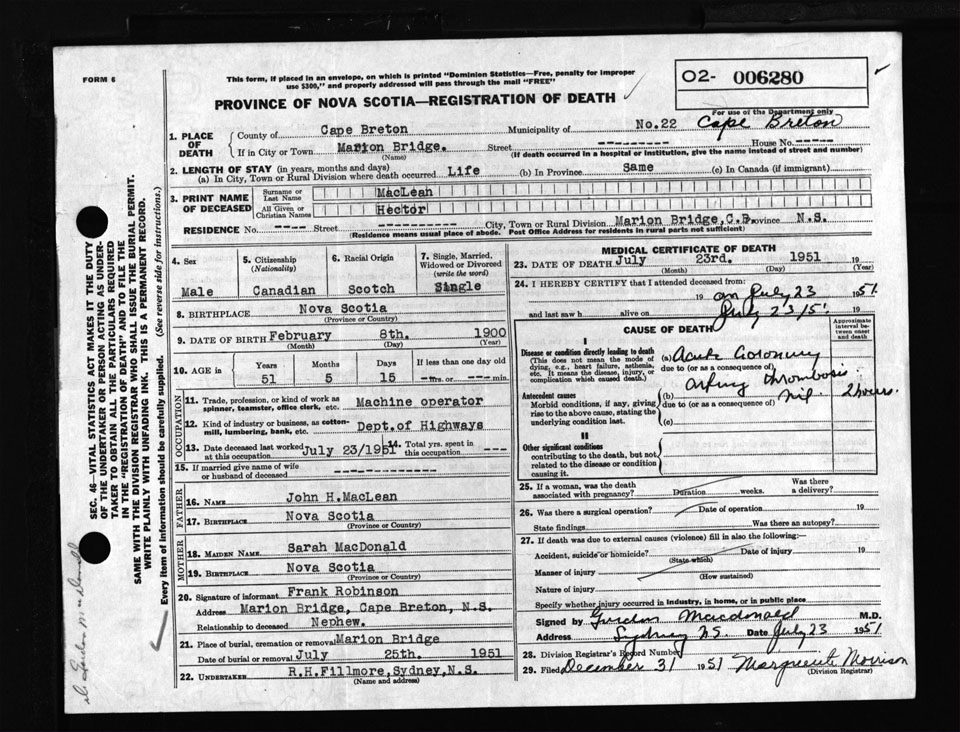 FORM 6
This form, if placed in an envelope, on which is printed "Dominion Statistics—Free, penalty for improper
use $300," and properly addressed will pass through the mail "FREE"
O2- 006280
PROVINCE OF NOVA SCOTIA—REGISTRATION OF DEATH
For use of the Department only
1. PLACE OF DEATH County of Cape Breton Municipality of No.22 Cape Breton
If in City or Town Marion Bridge. Street --------- House No. -----
(Name) (If death occurred in a hospital or institution, give the name instead of street and number)
2. LENGTH OF STAY (in years, months and days)
(a) In City, Town or Rural Division where death occurred Life (b) In Province same (c) In Canada (if immigrant)
3. PRINT NAME OF DECEASED Surname or Last Name MacLean
All Given or Christian Names Hector
RESIDENCE No. --- Street ---------- City, Town or Rural Division Marion Bridge,C.B. Province N.S.
(Residence means usual place of abode. Post Office Address for residents in rural parts not sufficient)
4. Sex 5. Citizenship (Nationality) 6. Racial Origin 7. Single, Married, Widowed or Divorced (write the word)
Male Canadian Scotch Single
8. BIRTHPLACE Nova Scotia
(Province or Country)
9. DATE OF BIRTH February 8th. 1900
(Month) (Day) (Year)
10. AGE in Years Months Days If less than one day old
51 5 15 --- hrs. or --- min.
OCCUPATION
11. Trade, profession, or kind of work as spinner, teamster, office clerk, etc. Machine operator
12. Kind of industry or business, as cotton-mill, lumbering, bank, etc. Dept.of Highways
13. Date deceased last worked at this occupation July 23/1951 14. Total yrs. spent in this occupation ---
15. If married give name of wife or husband of deceased ------------
FATHER
16. NAME John H.MacLean
17. BIRTHPLACE Nova Scotia
(Province or Country)
MOTHER
18. MAIDEN NAME Sarah MacDonald
19. BIRTHPLACE Nova Scotia
(Province or Country)
20. Signature of informant Frank Robinson
Address Marion Bridge, Cape Breton, N.S.
Relationship to deceased Nephew.
21. Place of burial, cremation or removal Marion Bridge
Date of burial or removal July 25th. 1951
22. UNDERTAKER R.H.Fillmore,Sydney,N.S.
(Name and address)
MEDICAL CERTIFICATE OF DEATH
23. DATE OF DEATH July 23rd. 1951 19
(Month) (Day) (Year)
24. I HEREBY CERTIFY that I attended deceased from:
19 on July 23 1951
and last saw h alive on July 23/51 19
CAUSE OF DEATH
Approximate interval between onset and death
I
Disease or condition directly leading to death (a) Acute Coronary
(This does not mean the mode of dying, e.g., heart failure, asthenia, etc. It means the disease, injury, or complication which caused death.)
due to (or as a consequence of)
artery thrombosis
Antecedent causes (b) nil. 2 hours.
Morbid conditions, if any, giving rise to the above cause, stating the underlying condition last.
due to (or as a consequence of)
(c)
II
Other significant conditions
contributing to the death, but not related to the disease or condition causing it.
25. If a woman, was the death associated with pregnancy? Duration weeks. Was there a delivery?
26. Was there a surgical operation? Date of operation 19
State findings Was there an autopsy?
27. If death was due to external causes (violence) fill in also the following:—
Accident, suicide or homicide? Date of injury 19
(State which)
Manner of injury
(How sustained)
Nature of injury
Specify whether injury occurred in industry, in home, or in public place
Signed by Gordon Macdonald M.D.
Address Sydney NS. Date July 23 1951
28. Division Registrar's Record Number
29. Filed December 31 1951 Marguerite Morrison
(Division Registrar)
SEC. 46—VITAL STATISTICS ACT MAKES IT THE DUTY
OF THE UNDERTAKER OR PERSON ACTING AS UNDER-
TAKER TO OBTAIN ALL THE PARTICULARS REQUIRED
IN THE "REGISTRATION OF DEATH" AND TO FILE THE
SAME WITH THE DIVISION REGISTRAR WHO SHALL ISSUE THE BURIAL PERMIT.
WRITE PLAINLY WITH UNFADING INK. THIS IS A PERMANENT RECORD.
Every item of information should be carefully supplied. (See reverse side for instructions.)